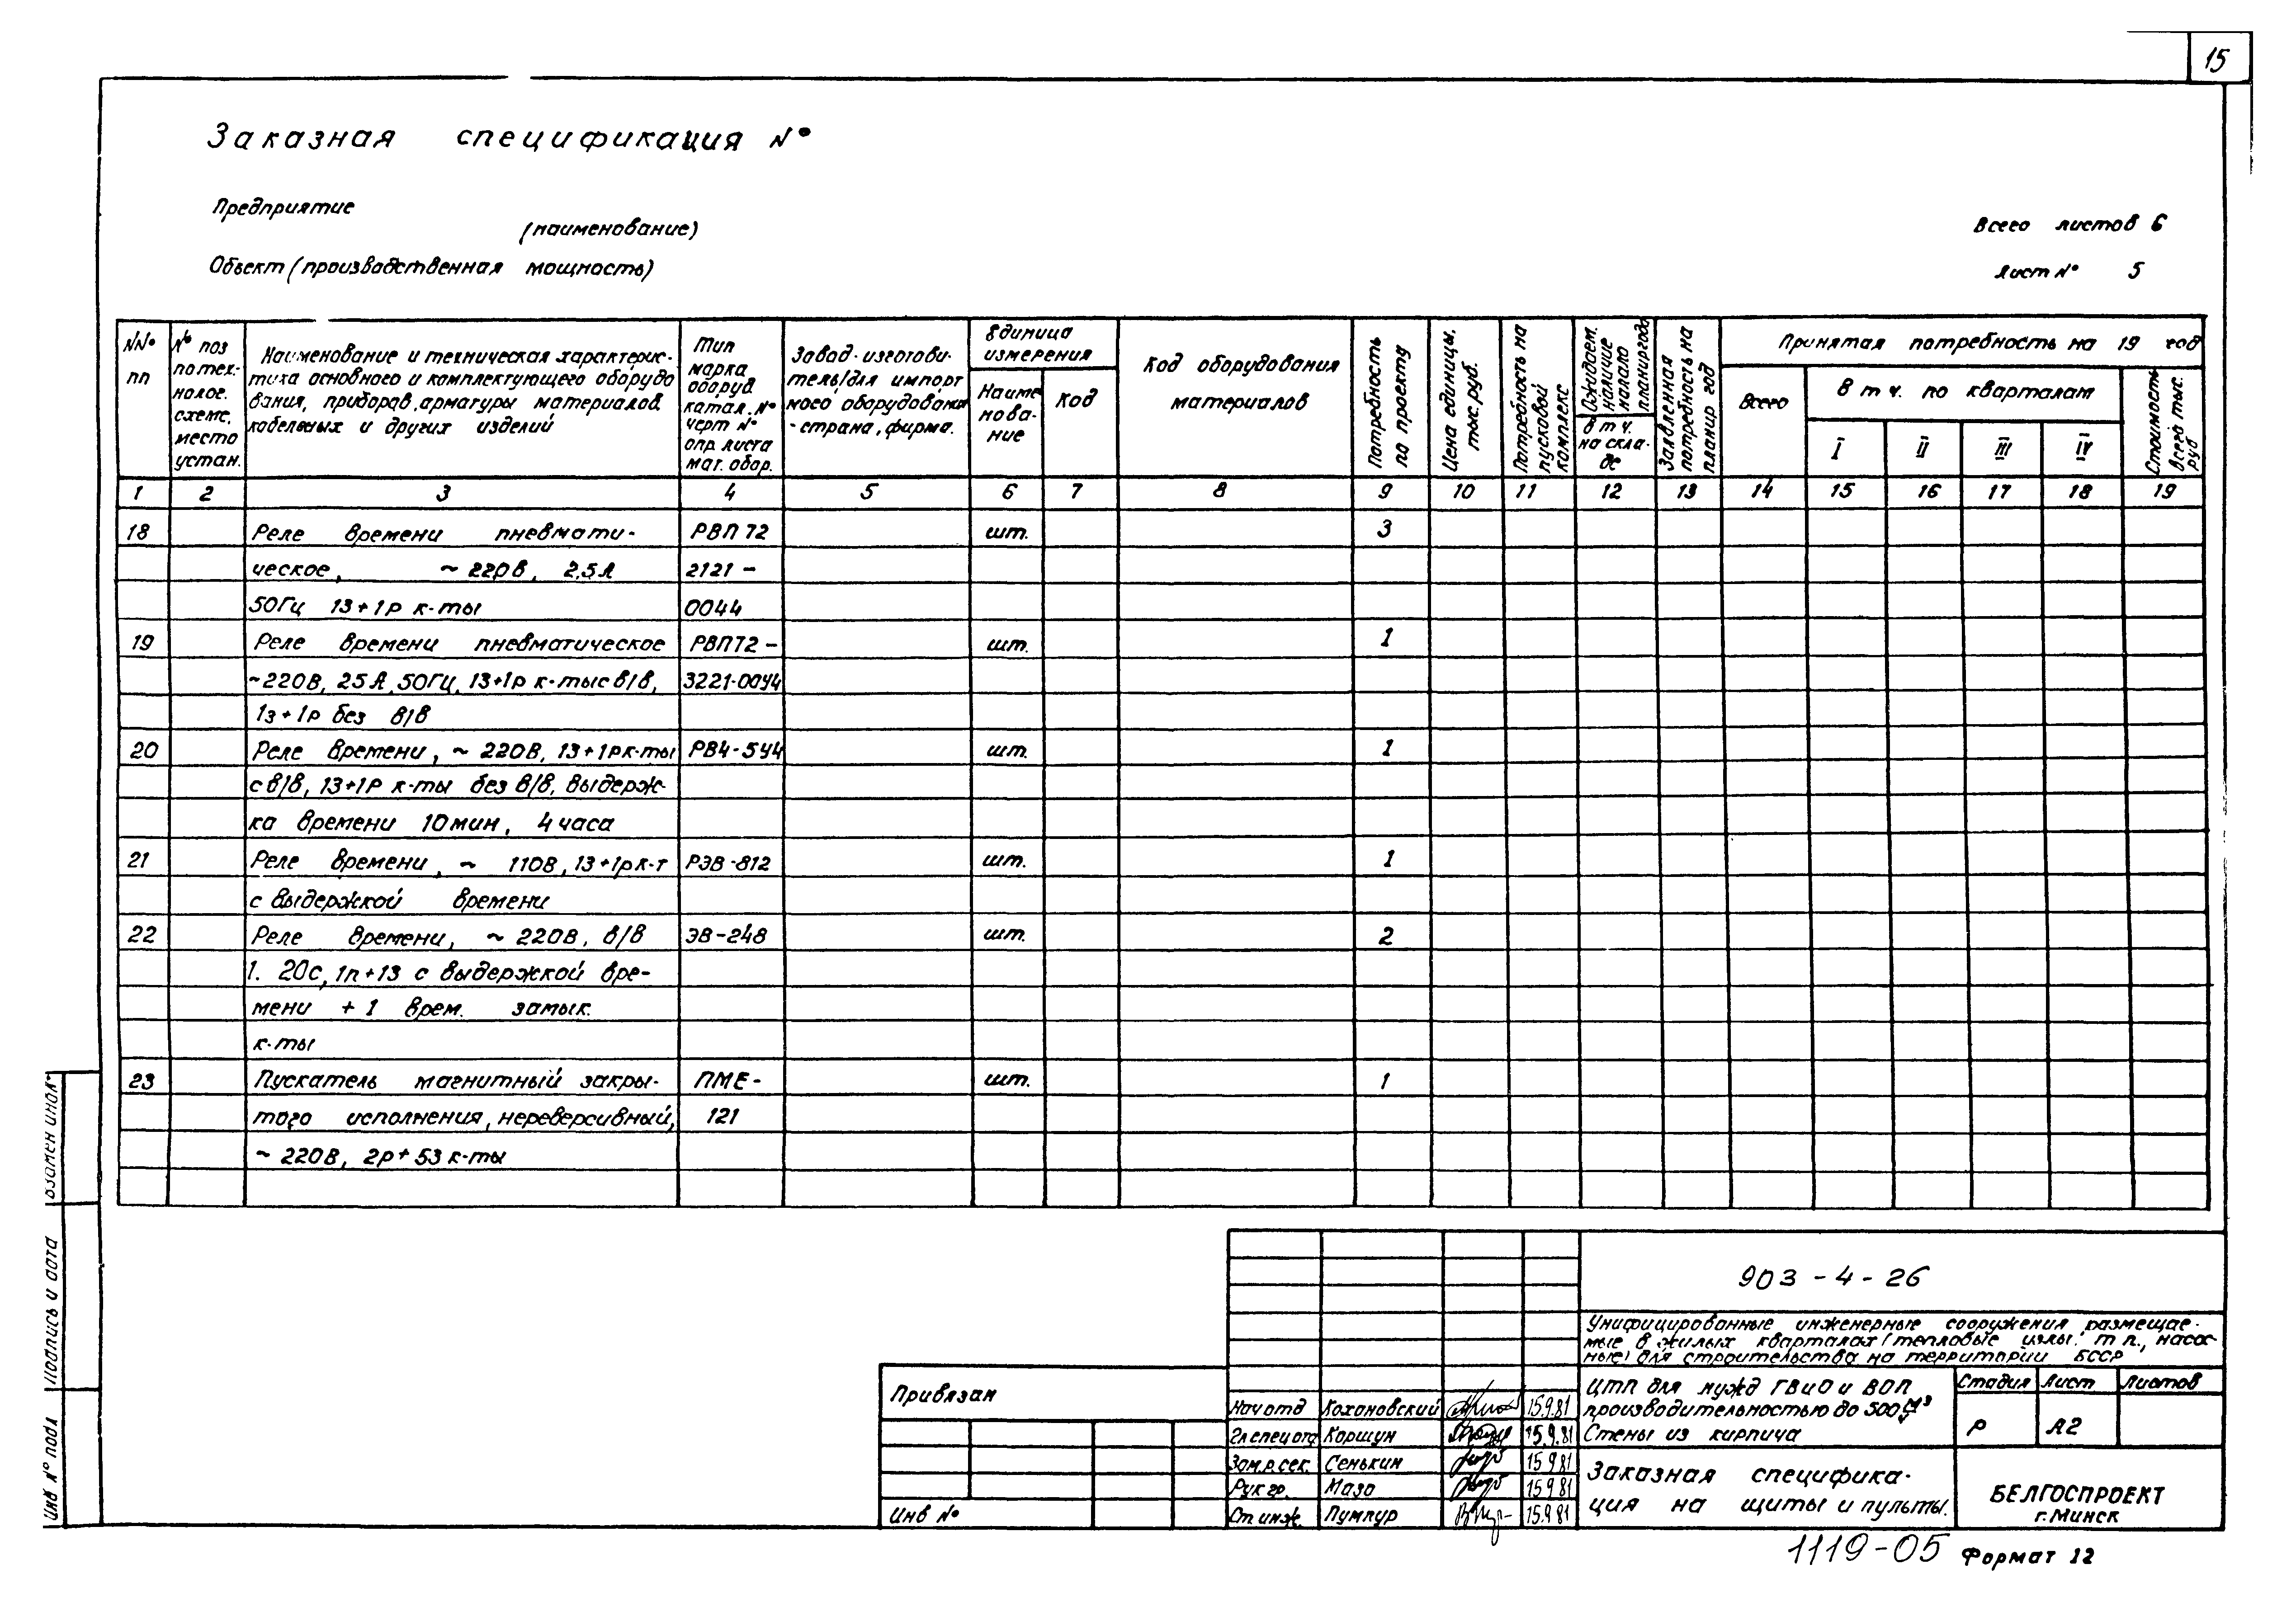 15
Заказная спецификация №
Предприятие
(наименование)
Объект (производственная мощность)
Всего листов 6
Лист № 5
№№ пп
№ поз по тех-нолог. схеме, место устан.
Наименование и техническая характерис-
тика основного и комплектующего оборудо
вания, приборов, арматуры материалов
кабельных и других изделий
Тип
марка
оборуд.
катал. №
черт №
опр. листа
мат. обор.
Завод-изготови-
тель/для импорт
ного оборудования
- страна, фирма.
Единица измерения
Наиме нова-ние
Код
Код оборудования
материалов
Потребность по проекту
Цена единицы, тыс. руб.
Потребность на пусковой комплекс
Ожидаем. наличие начало планир года
в т ч. на скла-де
Заявленная потребность на планир год
Принятая потребность на 19 год
Всего
В т ч. по кварталам
I II III IV
Стоимость всего тыс. руб
1 2 3 4 5 6 7 8 9 10 11 12 13 14 15 16 17 18 19
18 Реле времени пневмати- РВП 72 шт. 3
ческое, ~ 220в, 2,5А 2121 -
50Гц 1з+1р к-ты 0044
19 Реле времени пневматическое РВП72 - шт. 1
~220В, 25А, 50Гц, 1з+1р к-ты с в/в, 3221-00У4
1з+1р без в/в
20 Реле времени, ~ 220В, 1з+1р к-ты РВ4-5У4 шт. 1
с в/в, 1з+1р к-ты без в/в, выдерж-
ка времени 10мин, 4 часа
21 Реле времени, ~ 110В, 1з+1р к-т РЭВ-812 шт. 1
с выдержкой времени
22 Реле времени, ~ 220В, в/в ЭВ-248 шт. 2
1. 20с, 1п+1з с выдержкой вре-
мени + 1 врем. замык.
к-ты
23 Пускатель магнитный закры- ПМЕ- шт. 1
того исполнения, нереверсивный, 121
~ 220В, 2р+5з к-ты
Взамен инв.№
Подпись и дата
Инв № подл
903-4-26
Унифицированные инженерные сооружения размещае-
мые в жилых кварталах (тепловые узлы, т п., насос-
ные) для строительства на территории БССР
Привязан
Инв №
Нач отд Кохановский 15.9.81
Гл спец отд Коршун 15.9.81
Зам.р.сек. Сенькин 15 9 81
Рук гр. Мазо 15 9 81
Ст инж. Пумпур 15.9 81
ЦТП для нужд ГВ и О и ВОП
производительностью до 500 м³
Стены из кирпича
Стадия Лист Листов
Р А2
Заказная специфика-
ция на щиты и пульты.
БЕЛГОСПРОЕКТ
г. Минск
1119-05 Формат 12